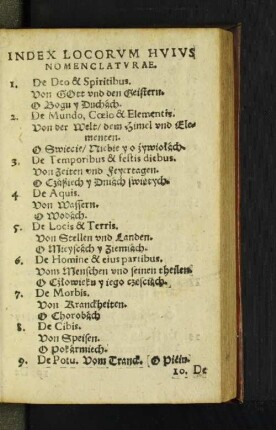 INDEX LOCORVM HVIVS
NOMENCLATVRAE.
1. De Deo & Spiritibus.
Von GOtt vnd den Geistern.
O Bogu y Duchách.
2. De Mundo, Cœlo & Elementis.
Von der Welt/ dem Himel vnd Ele-
menten.
O Swiecie/ Niebie y o żywiołách.
3. De Temporibus & festis diebus.
Von Zeiten vnd Feyrtagen.
O Cżásiech y Dniách swiętych.
4. De Aquis.
Von Wassern.
O Wodách.
5. De Locis & Terris.
Von Stellen vnd Landen.
O Mieyscách y Ziemiách.
6. De Homine & eius partibus.
Vom Menschen vnd seinen theilen.
O Cżłowieku y iego cżęsciách.
7. De Morbis.
Von Kranckheiten.
O Chorobách
8. De Cibis.
Von Speisen.
O Pokármiech.
9. De Potu. Vom Tranck. [O Piciu.
10. De